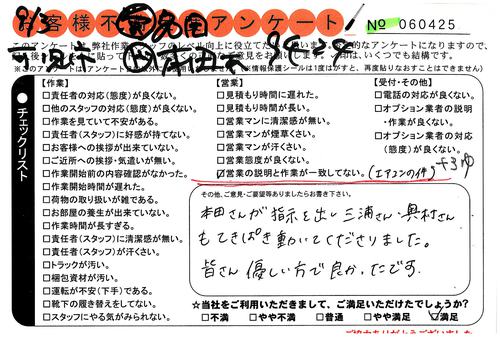 お客様不満足度アンケート
№ 060425
9/3
このアンケートは、弊社作業スタッフのレベル向上に役立てた
【作業】
□責任者の対応(態度)が良くない。
□他のスタッフの対応(態度)が良くない。
□作業を見ていて不安がある。
□責任者(スタッフ)に好感が持てない。
□お客様への挨拶が出来ていない。
□ご近所への挨拶・気遣いが無い。
□作業開始前の内容確認がなかった。
□作業開始時間が遅れた。
□荷物の取り扱いが雑である。
□お部屋の養生が出来ていない。
□作業時間が長すぎる。
□責任者(スタッフ)に清潔感が無い。
□責任者(スタッフ)が汗くさい。
□トラックが汚い。
□梱包資材が汚い。
□運転が不安(下手)である。
□靴下の履き替えをしてない。
□スタッフにやる気がみられない。
●チェックリスト
【営業】
□見積もり時間に遅れた。
□見積もり時間が長い。
□営業マンに清潔感が無い。
□営業マンが煙草くさい。
□営業マンが汗くさい。
□営業態度が良くない。
□営業の説明と作業が一致してない。(エアコンの件)
【受付・その他】
□電話の対応が良くない。
□オプション業者の説明
・作業が良くない。
□オプション業者の対応
(態度)が良くない。
その他、ご意見・ご要望等ありましたらお書き下さい。
本田さんが指示を出し三浦さん 奥村さん
もてきぱき動いてくださりました。
皆さん優しい方で良かったです。
☆当社をご利用いただきまして、ご満足いただけたでしょうか?
□不満 □やや不満 □普通 □やや満足 □満足
ご協力ありがとうございました